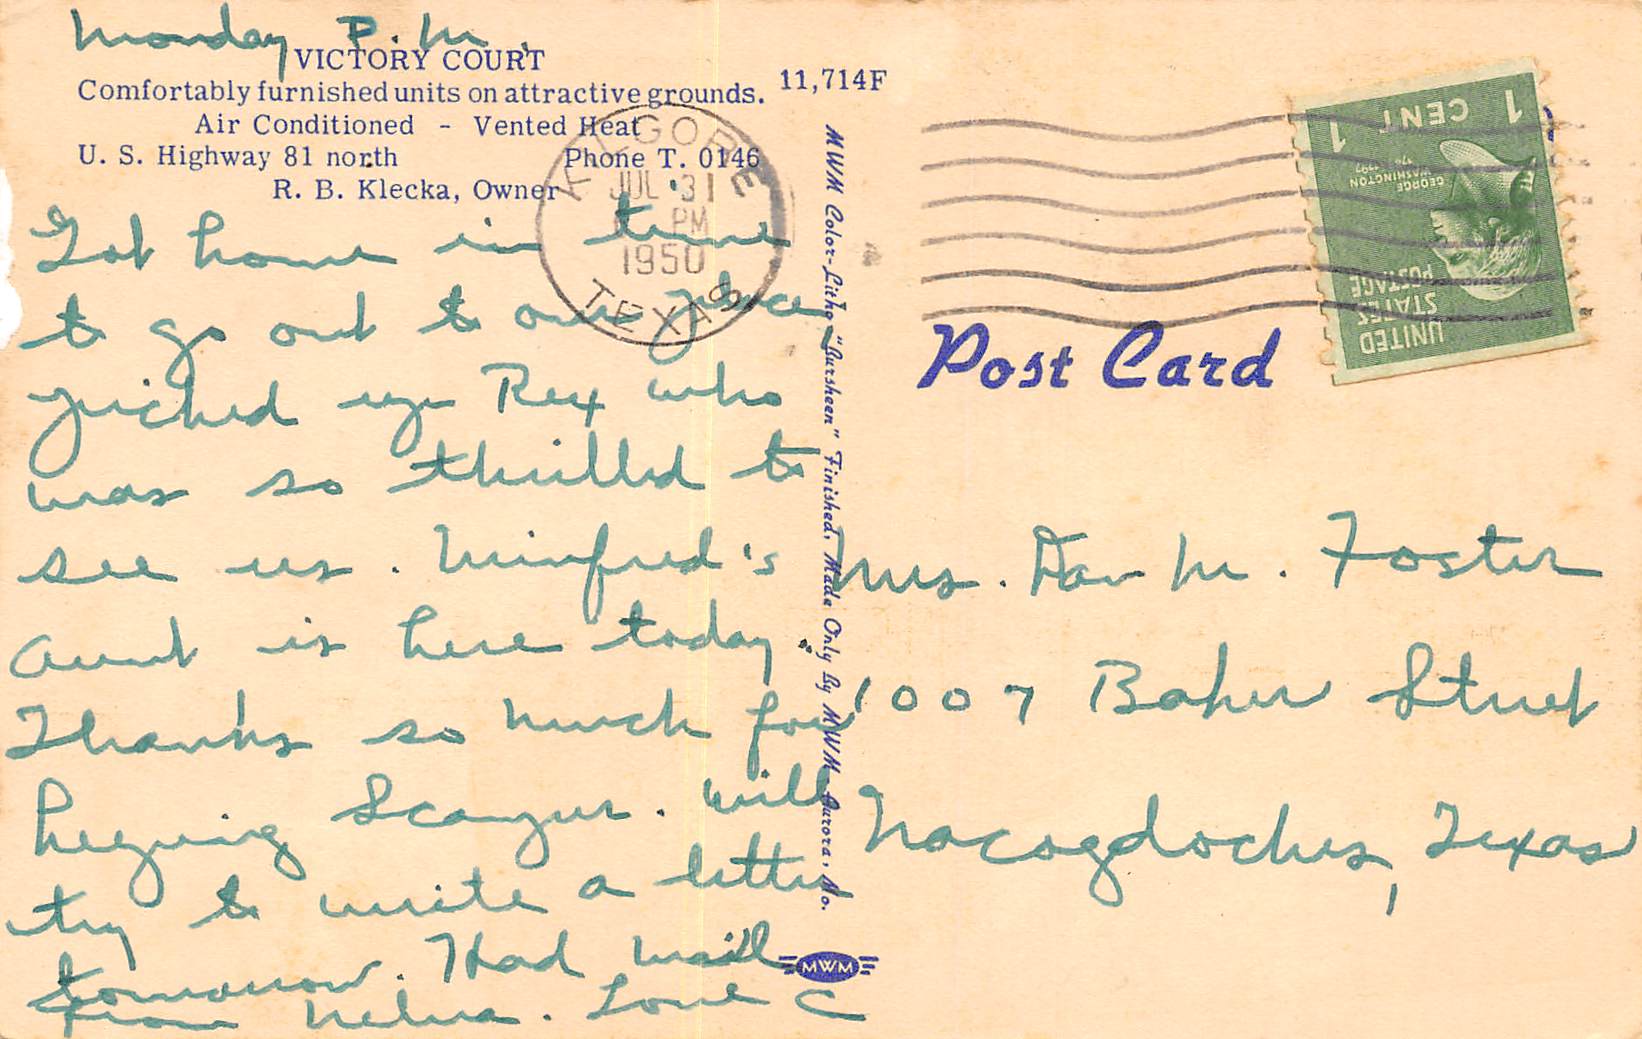 Monday P.M.
VICTORY COURT
Comfortably furnished units on attractive grounds.
Air Conditioned - Vented Heat
U. S. Highway 81 north Phone T. 0146
R. B. Klecka, Owner
11,714F
KILGORE
JUL 31
PM
1950
TEXAS
Got home in time
to go out to our place
picked up Rex who
was so thrilled to
see us. Winfred's
aunt is here today.
Thanks so much for
keeping Scamper. Will
try to write a letter
tomorrow. Had mail
from Melva. Love C
MWM Color-Litho "Bursheen" Finished. Made Only By MWM Aurora, Mo.
MWM
1 CENT 1
GEORGE
WASHINGTON
1789-1797
UNITED
STATES
POSTAGE
Post Card
Mrs. Dan M. Foster
1007 Baker Street
Nacogdoches, Texas